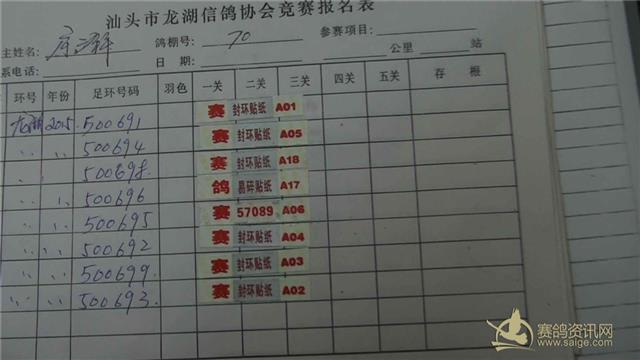 汕头市龙湖信鸽协会竞赛报名表
主姓名: 鸽棚号: 70 参赛项目:
系电话: 日期: 公里 站
环号 年份 足环号码 羽色 一关 二关 三关 四关 五关 存根
龙湖 2015. 500691 赛 封环贴纸 A01
〃 〃 500694 赛 封环贴纸 A05
500698. 赛 封环贴纸 A18
〃 〃 500696 鸽 易碎贴纸 A17
〃 〃 500695 赛 57089 A06
〃 〃 500692 赛 封环贴纸 A04
〃 〃 500699. 赛 封环贴纸 A03
〃 〃 500693. 赛 封环贴纸 A02
赛鸽资讯网
www.saige.com